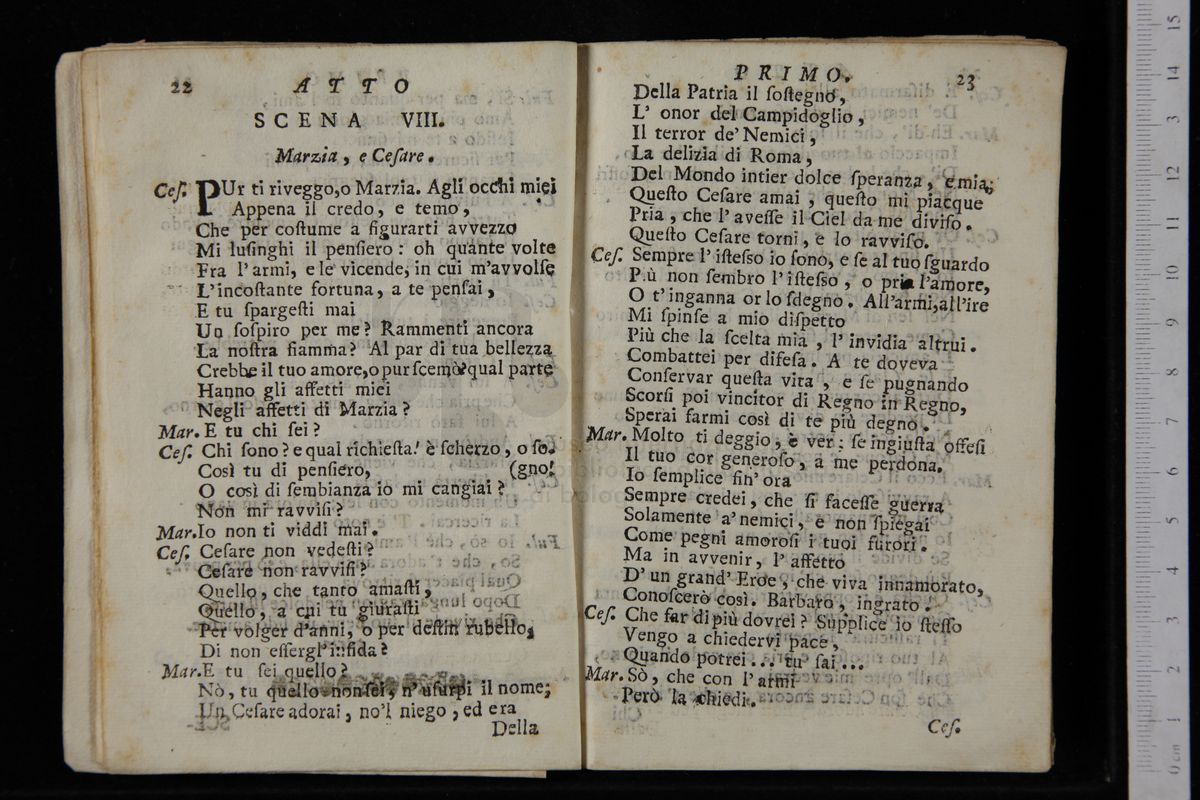 22 ATTO
SCENA VIII.
Marzia, e Ceſare.
Ceſ. PUr ti riveggo, o Marzia. Agli occhi miei
Appena il credo, e temo,
Che per coſtume a figurarti avvezzo
Mi luſinghi il penſiero: oh quante volte
Fra l'armi, e le vicende, in cui m'avvolſe
L'incoſtante fortuna, a te penſai,
E tu ſpargeſti mai
Un ſoſpiro per me? Rammenti ancora
La noſtra fiamma? Al par di tua bellezza
Crebbe il tuo amore, o pur ſcemò? qual parte
Hanno gli affetti miei
Negli affetti di Marzia?
Mar. E tu chi ſei?
Ceſ. Chi ſono? e qual richieſta! è ſcherzo, o ſo-
Così tu di penſiero, (gno!
O così di ſembianza io mi cangiai?
Non mi ravviſi?
Mar. Io non ti viddi mai.
Ceſ. Ceſare non vedeſti?
Ceſare non ravviſi?
Quello, che tanto amaſti,
Quello, a cui tu giuraſti
Per volger d'anni, o per deſtin rubello,
Di non eſſergl'infida?
Mar. E tu ſei quello?
Nò, tu quello non ſei, n'uſurpi il nome;
Un Ceſare adorai, no'l niego, ed era
Della
PRIMO. 23
Della Patria il ſoſtegno,
L' onor del Campidoglio,
Il terror de' Nemici,
La delizia di Roma,
Del Mondo intier dolce ſperanza, e mia;
Queſto Ceſare amai, queſto mi piacque
Pria, che l' aveſſe il Ciel da me diviſo.
Queſto Ceſare torni, e lo ravviſo.
Ceſ. Sempre l' iſteſso io ſono, e ſe al tuo ſguardo
Più non ſembro l' iſteſso, o pria l'amore,
O t' inganna or lo ſdegno. All'armi, all'ire
Mi ſpinſe a mio diſpetto
Più che la ſcelta mia, l' invidia altrui.
Combattei per difeſa. A te doveva
Conſervar queſta vita, e ſe pugnando
Scorſi poi vincitor di Regno in Regno,
Sperai farmi così di te più degno.
Mar. Molto ti deggio, è ver: ſe ingiuſta offeſi
Il tuo cor generoſo, a me perdona.
Io ſemplice fin' ora
Sempre credei, che ſi faceſſe guerra
Solamente a' nemici, e non ſpiegai
Come pegni amoroſi i tuoi furori.
Ma in avvenir, l' affetto
D' un grand' Eroe, che viva innamorato,
Conoſcerò così. Barbaro, ingrato.
Ceſ. Che far di più dovrei? Supplice io ſteſſo
Vengo a chiedervi pace,
Quando potrei... tu ſai...
Mar. Sò, che con l' armi
Però la chiedi.
Ceſ.